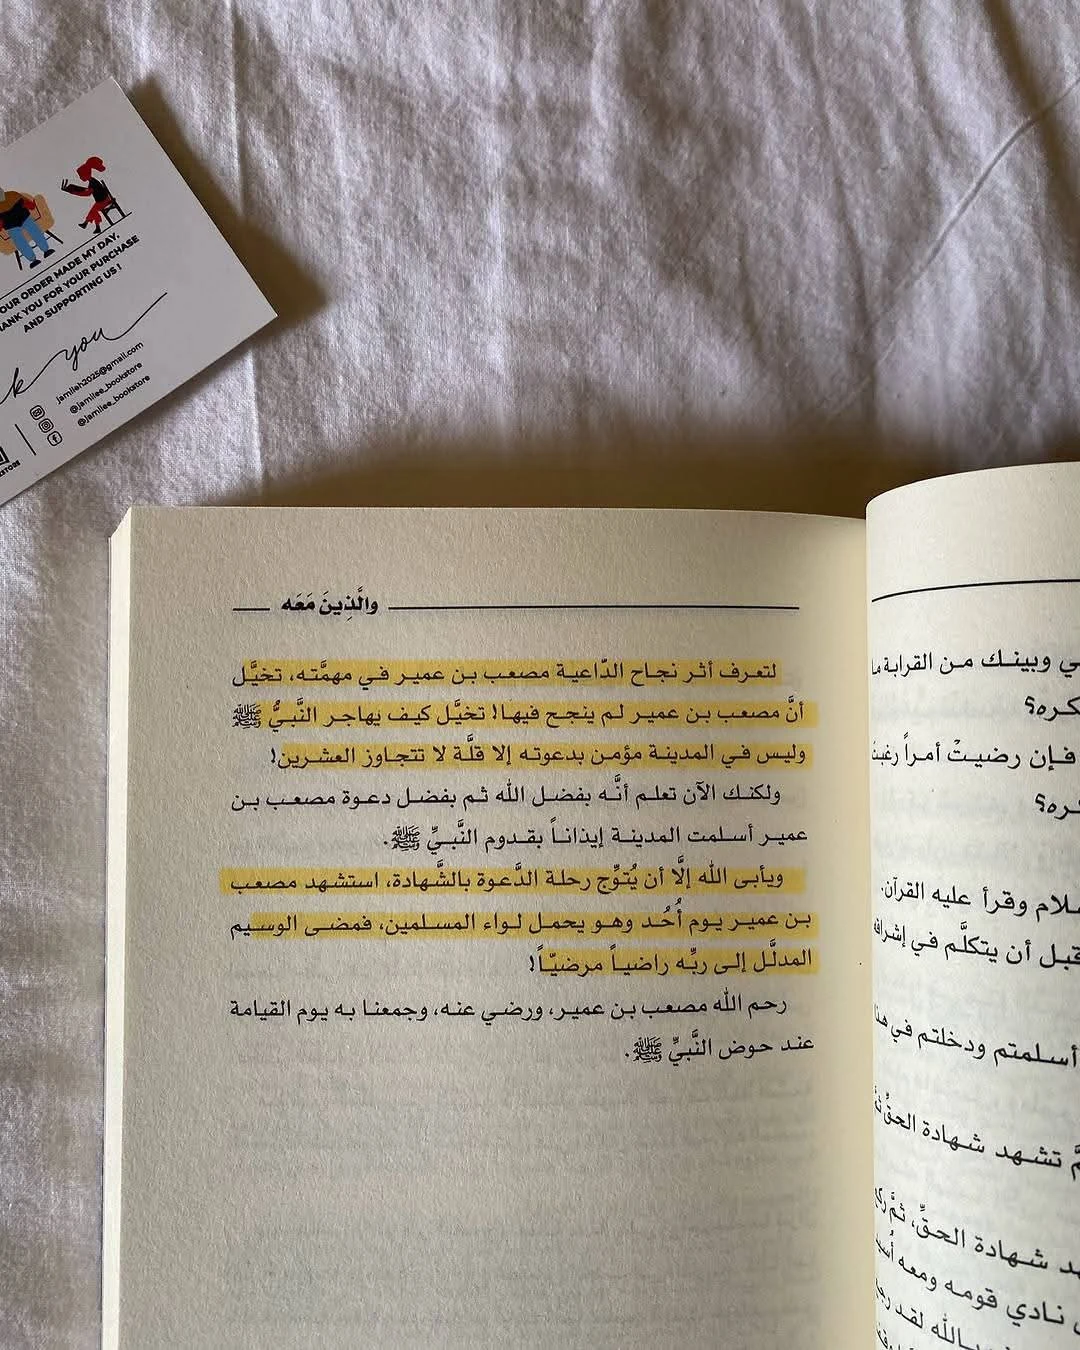 OUR ORDER MADE MY DAY.
THANK YOU FOR YOUR PURCHASE
AND SUPPORTING US !
you
jamileh2025@gmail.com
@jamilee_bookstore
@jamilee_bookstore
والَّذِينَ مَعَه
لتعرف أثر نجاح الدّاعية مصعب بن عمير في مهمَّته، تخيَّل
أنَّ مصعب بن عمير لم ينجح فيها! تخيَّل كيف يهاجر النَّبيُّ ﷺ
وليس في المدينة مؤمن بدعوته إلا قلَّة لا تتجاوز العشرين!
ولكنك الآن تعلم أنَّه بفضل الله ثم بفضل دعوة مصعب بن
عمير أسلمت المدينة إيذاناً بقدوم النَّبيِّ ﷺ.
ويأبى الله إلَّا أن يُتوِّج رحلة الدَّعوة بالشَّهادة، استشهد مصعب
بن عمير يوم أُحُد وهو يحمل لواء المسلمين، فمضى الوسيم
المدلَّل إلى ربِّه راضياً مرضيّاً!
رحم الله مصعب بن عمير، ورضي عنه، وجمعنا به يوم القيامة
عند حوض النَّبيِّ ﷺ.
وبينك من القرابة
فإن رضيتْ أمراً
وقرأ عليه القرآن.
قبل أن يتكلَّم في
أسلمتم ودخلتم في
تشهد شهادة الحقِّ
شهادة الحقِّ، ثمَّ
نادي قومه ومعه
لقد